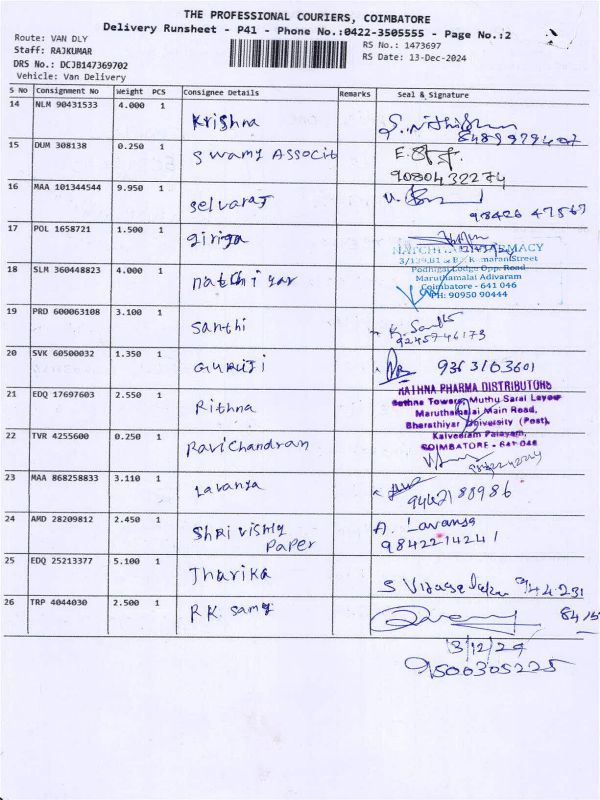 THE PROFESSIONAL COURIERS, COIMBATORE
Delivery Runsheet - P41 - Phone No.:0422-3505555 - Page No.:2
Route: VAN DLY
Staff: RAJKUMAR
DRS No.: DCJB147369702
Vehicle: Van Delivery
RS No.: 1473697
RS Date: 13-Dec-2024
S No Consignment No Weight PCS Consignee Details Remarks Seal & Signature
14 NLM 90431533 4.000 1 Krishna
8489979407
15 DUM 308138 0.250 1 Swamy Associt
9080432274
16 MAA 101344544 9.950 1 Selvaraj
98426 47567
17 POL 1658721 1.500 1 girija
NATCHIYAR PHARMACY
3/129.B1 & B2, Kumaran Street
Podhigai Lodge Opp. Road
Maruthamalai Adivaram
Coimbatore - 641 046
PH: 90950 90444
18 SLM 360448823 4.000 1 natchiyar
19 PRD 600063108 3.100 1 Santhi
9245746173
20 SVK 60500032 1.350 1 GURUJI
9363163601
21 EDQ 17697603 2.550 1 Rithna
RATHNA PHARMA DISTRIBUTORS
Towers, Muthu Sarai Layout
Maruthamalai Main Road,
Bharathiyar University (Post),
Kalveeram Palayam,
COIMBATORE - 641 046
22 TVR 4255600 0.250 1 Ravichandran
23 MAA 868258833 3.110 1 Lavanya
24 AMD 28209812 2.450 1 Shri vishnu Paper
A. Lavanya
9842214241
25 EDQ 25213377 5.100 1 Tharika
26 TRP 4044030 2.500 1 R.K. Samy
13/12/24
9500305225